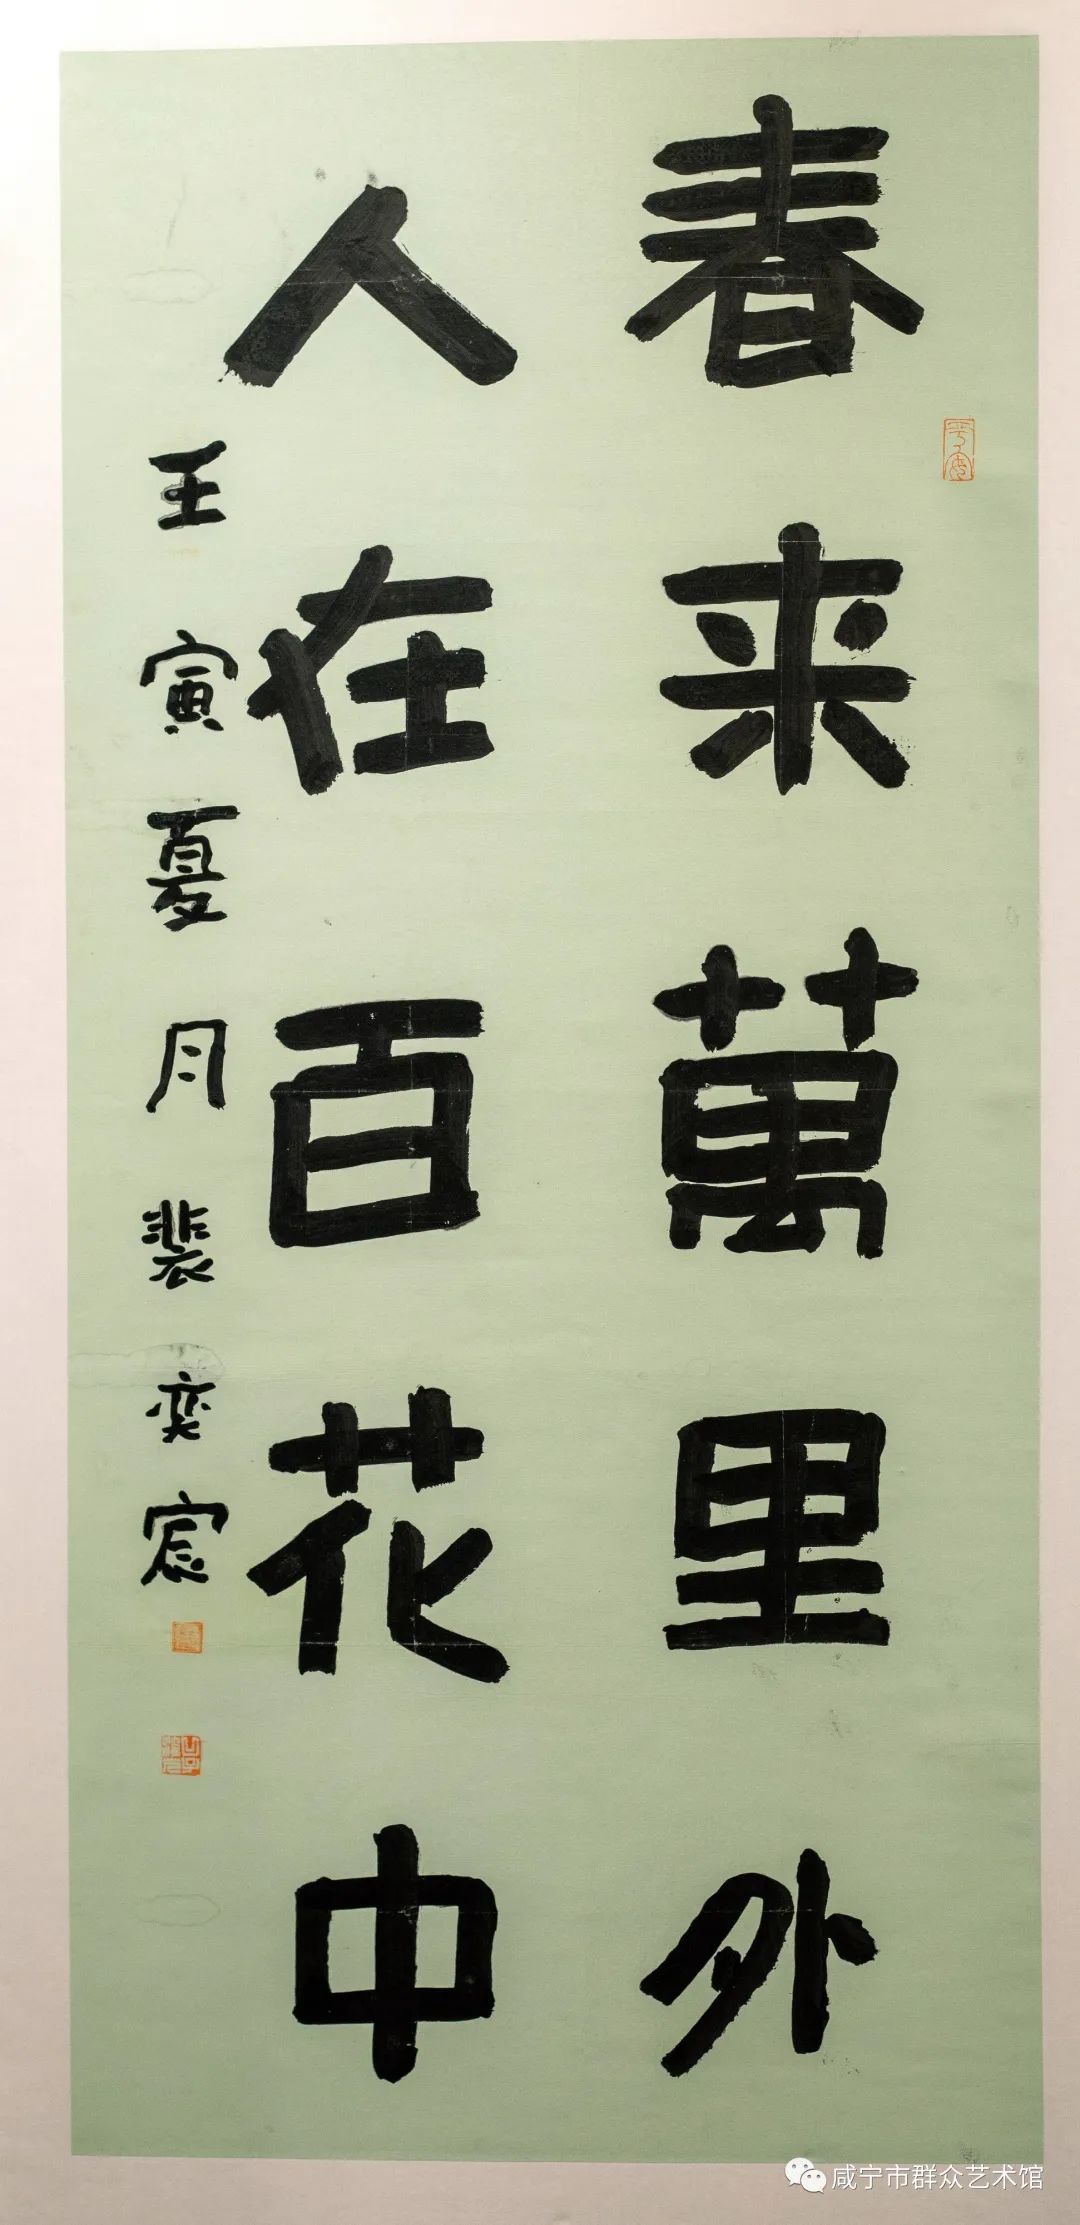 春来萬里外
人在百花中
王寅夏月裴奕宸
咸宁市群众艺术馆